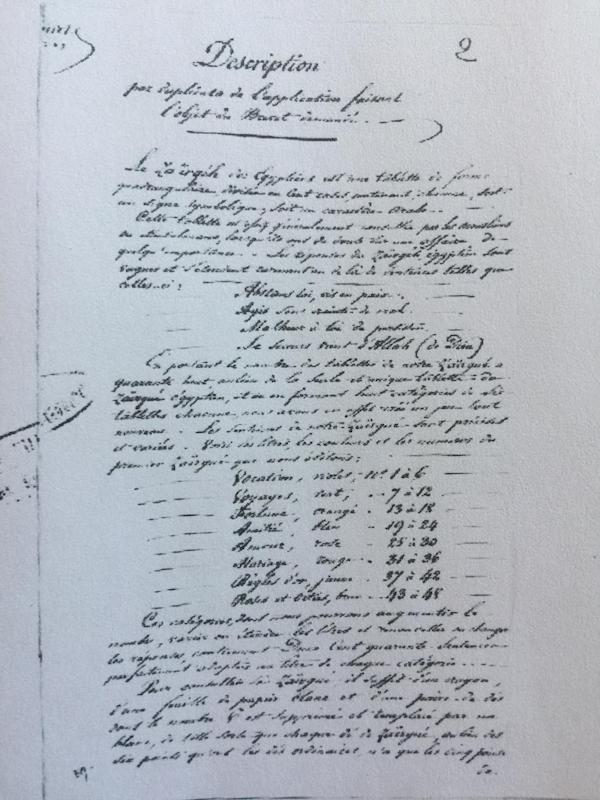 2
Description
par duplicata de l'application faisant
l'objet du Brevet demandé. —
Le Zaïrgèh des Égyptiens est une tablette de forme
quadrangulaire, divisée en cent cases, contenant chacune, soit
un signe symbolique, soit un caractère arabe. —
Cette tablette est assez généralement consultée par les
ou les musulmans, lorsqu'ils ont du doute sur une affaire de
quelqu'importance. — Les réponses du Zaïrgèh égyptien sont
vagues et s'étendent rarement au delà de sentences telles que
celles-ci:
Abstiens toi, vis en paix.
Agis sans crainte de mal.
Malheur à toi
Le secours vient d'Allah (de Dieu)
En portant le nombre des tablettes de notre Zaïrgué à
quarante huit, au lieu de la seule et unique tablette du
Zaïrgué égyptien, et en en formant huit catégories de six
tablettes chacune, nous avons en effet créé un jeu tout
nouveau. — Les sentences de notre Zaïrgué sont précises
et variées. Voici les titres, les couleurs et les numéros du
premier Zaïrgué que nous éditons:
Vocation, violet, n° 1 à 6
Voyages, vert, " 7 à 12
Fortune, orange " 13 à 18
Amitié, bleu " 19 à 24
Amour, rose " 25 à 30
Mariage, rouge " 31 à 36
Règles d'or, jaune " 37 à 42
Roses et orties, brun " 43 à 48
Ces catégories, dont nous pourrons augmenter le
nombre, varier ou étendre les titres et renouveler ou changer
les réponses, contiennent Deux Cent quarante Sentences
parfaitement adaptées au titre de chaque catégorie. —
Pour consulter le Zaïrgué il suffit d'un crayon,
d'une feuille de papier blanc et d'une paire de dés
dont le nombre 6 est supprimé et remplacé par un
blanc, de telle sorte que chaque dé de Zaïrgué, au lieu des
six points qu'ont les dés ordinaires, n'a que les cinq points